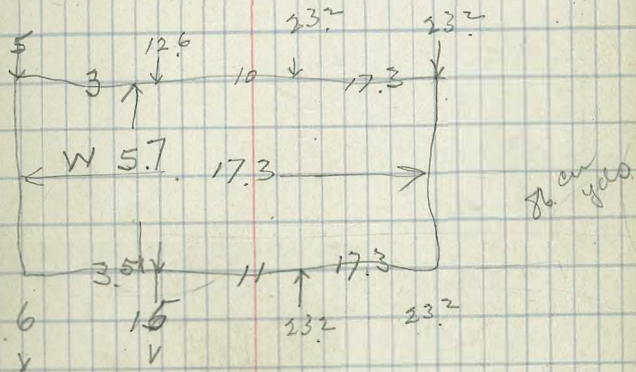 5 12.6 23.2 23.2
3 10 17.3
W 5.7 17.3
86. cu yds.
3.5 11 17.3
6 23.2 23.2